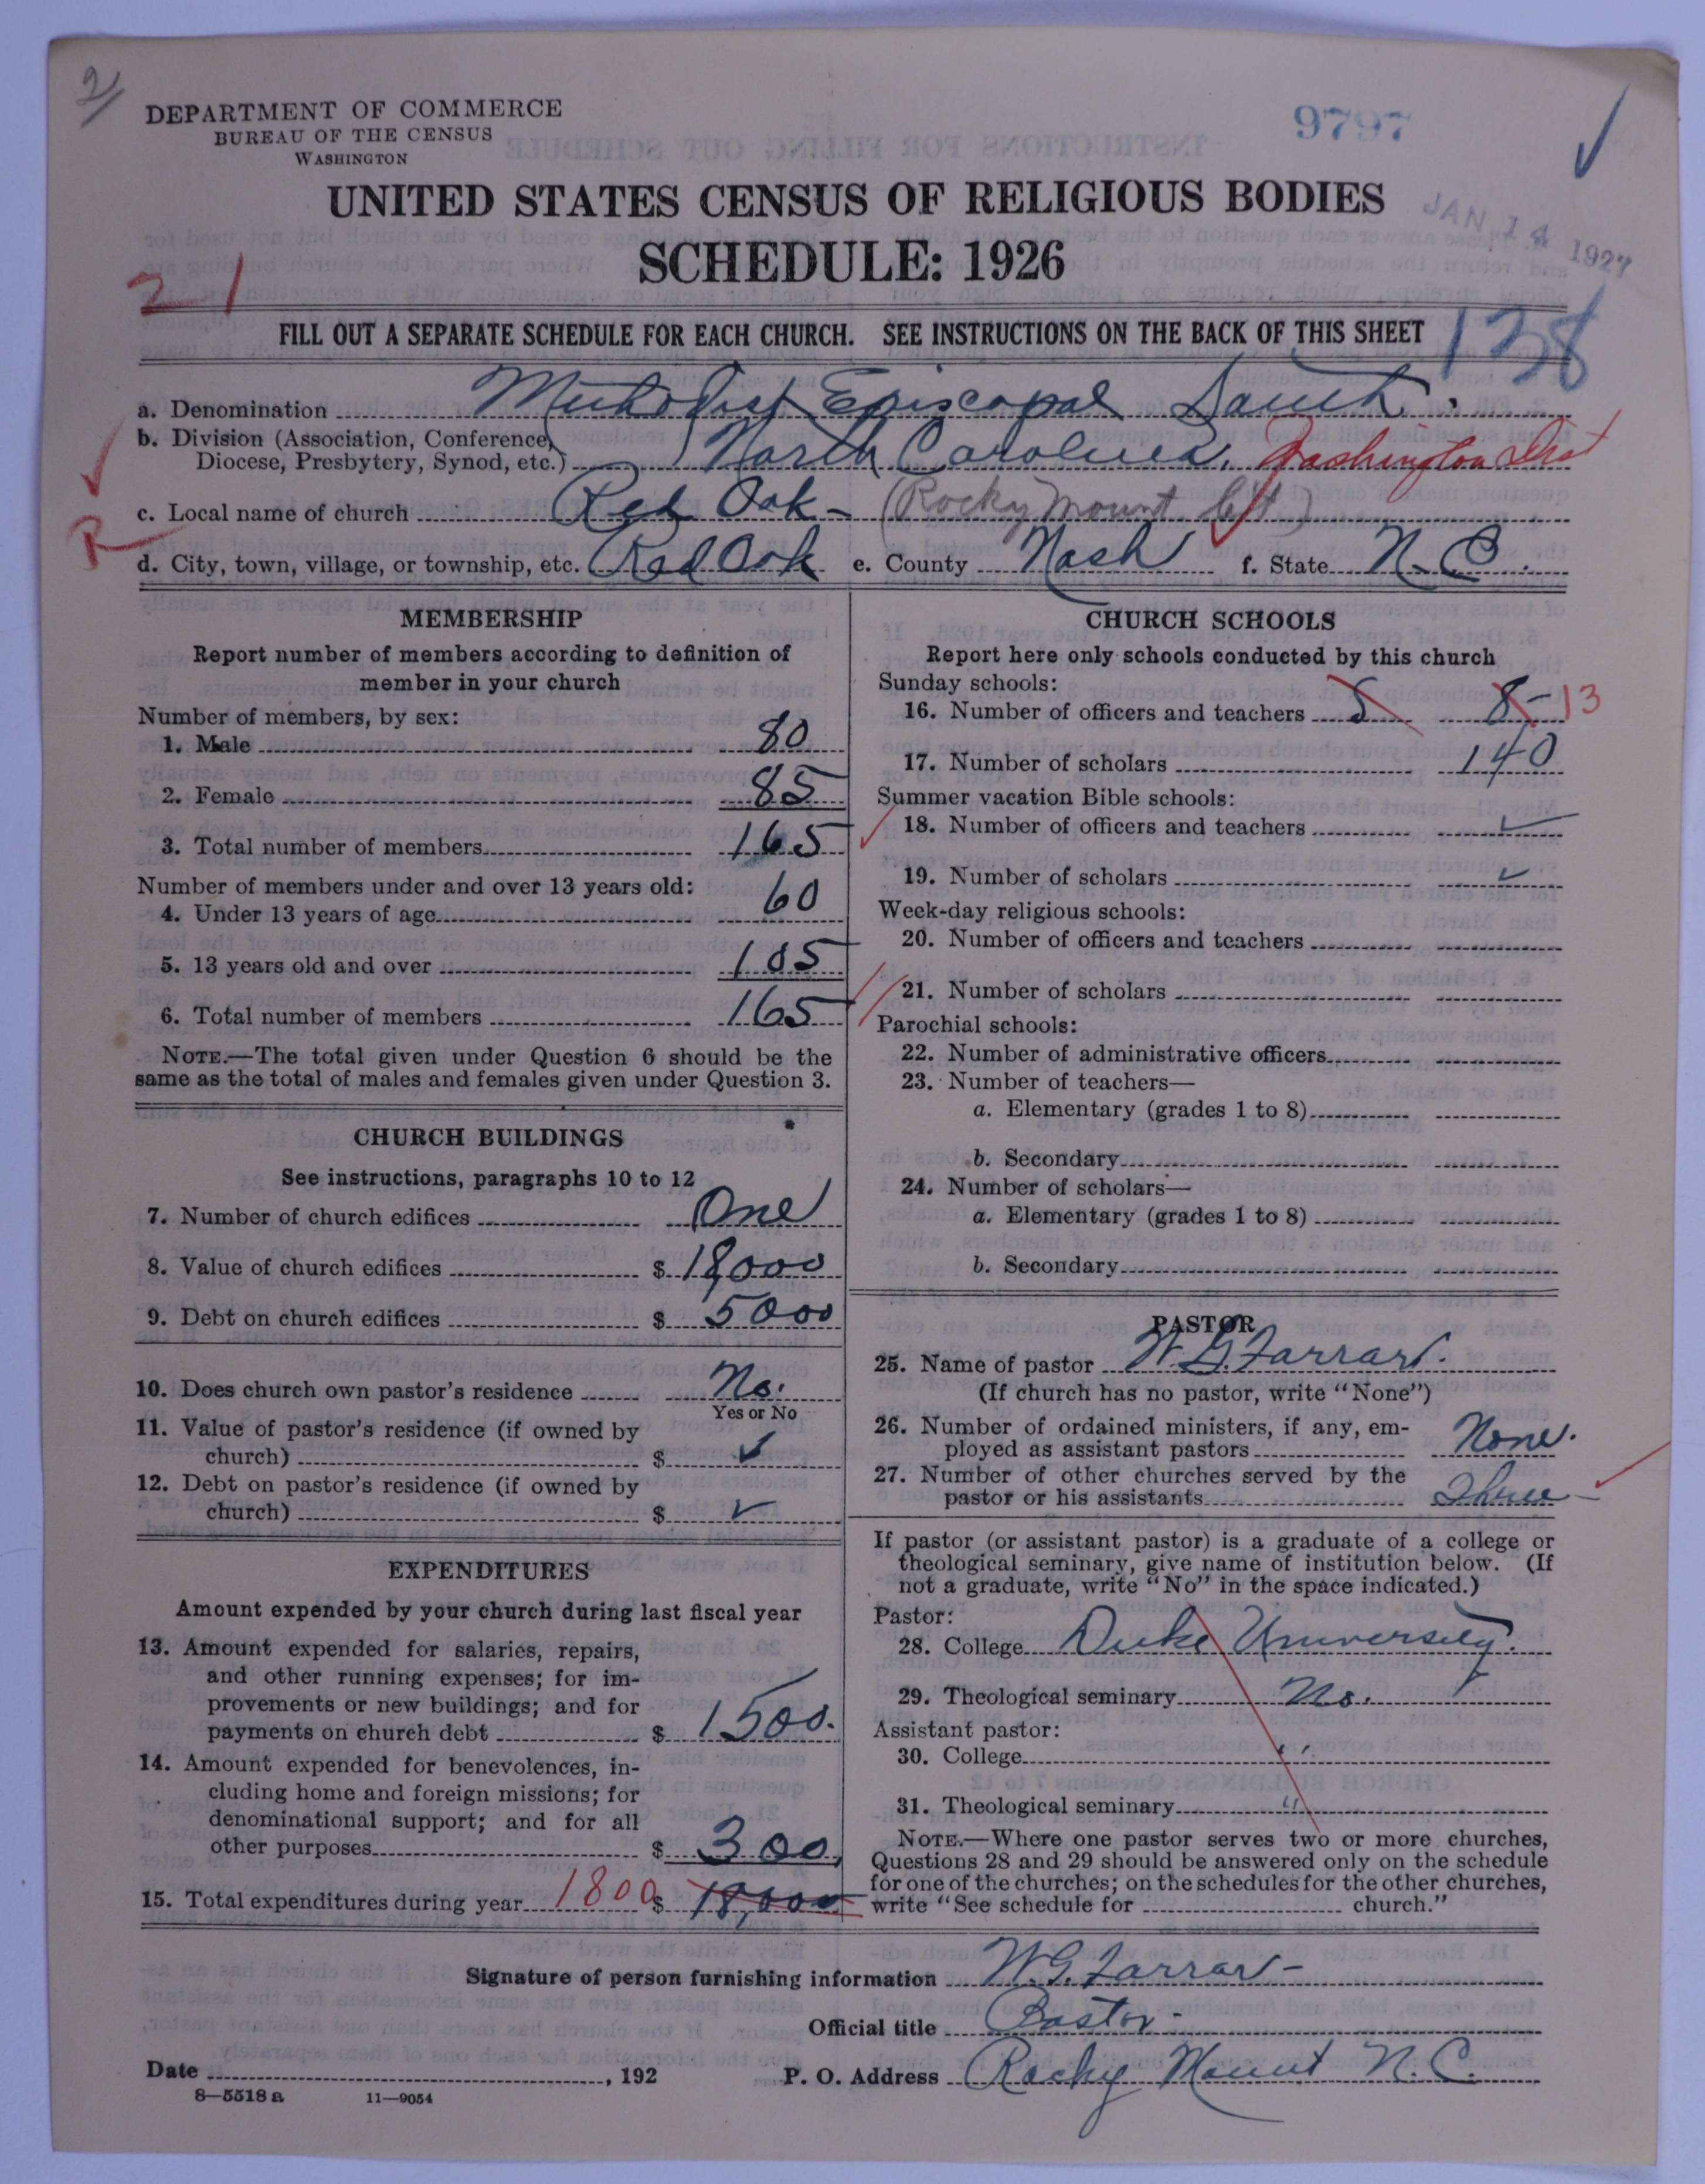 2/
DEPARTMENT OF COMMERCE
BUREAU OF THE CENSUS
WASHINGTON
9797
UNITED STATES CENSUS OF RELIGIOUS BODIES
JAN 14 1927
SCHEDULE: 1926
21
FILL OUT A SEPARATE SCHEDULE FOR EACH CHURCH. SEE INSTRUCTIONS ON THE BACK OF THIS SHEET
138
a. Denomination Methodist Episcopal South.
b. Division (Association, Conference,
Diocese, Presbytery, Synod, etc.) North Carolina. Washington Dist
c. Local name of church Red Oak - (Rocky Mount Ct)
R
d. City, town, village, or township, etc. Red Oak e. County Nash f. State N.C.
MEMBERSHIP
Report number of members according to definition of
member in your church
Number of members, by sex:
1. Male 80
2. Female 85
3. Total number of members 165
Number of members under and over 13 years old:
4. Under 13 years of age 60
5. 13 years old and over 105
6. Total number of members 165
NOTE.—The total given under Question 6 should be the
same as the total of males and females given under Question 3.
CHURCH BUILDINGS
See instructions, paragraphs 10 to 12
7. Number of church edifices One
8. Value of church edifices $ 18,000
9. Debt on church edifices $ 5000
10. Does church own pastor's residence No.
Yes or No
11. Value of pastor's residence (if owned by
church) $ ✓
12. Debt on pastor's residence (if owned by
church) $ ✓
EXPENDITURES
Amount expended by your church during last fiscal year
13. Amount expended for salaries, repairs,
and other running expenses; for im-
provements or new buildings; and for
payments on church debt $ 1500.
14. Amount expended for benevolences, in-
cluding home and foreign missions; for
denominational support; and for all
other purposes $ 300.
15. Total expenditures during year 1800 $ 18,000
CHURCH SCHOOLS
Report here only schools conducted by this church
Sunday schools:
16. Number of officers and teachers 5 8- 13
17. Number of scholars 140
Summer vacation Bible schools:
18. Number of officers and teachers ✓
19. Number of scholars ✓
Week-day religious schools:
20. Number of officers and teachers
21. Number of scholars
Parochial schools:
22. Number of administrative officers
23. Number of teachers—
a. Elementary (grades 1 to 8)
b. Secondary
24. Number of scholars—
a. Elementary (grades 1 to 8)
b. Secondary
PASTOR
25. Name of pastor W. G. Farrar.
(If church has no pastor, write "None")
26. Number of ordained ministers, if any, em-
ployed as assistant pastors None.
27. Number of other churches served by the
pastor or his assistants Three
If pastor (or assistant pastor) is a graduate of a college or
theological seminary, give name of institution below. (If
not a graduate, write "No" in the space indicated.)
Pastor:
28. College Duke University.
29. Theological seminary No.
Assistant pastor:
30. College "
31. Theological seminary "
NOTE.—Where one pastor serves two or more churches,
Questions 28 and 29 should be answered only on the schedule
for one of the churches; on the schedules for the other churches,
write "See schedule for church."
Signature of person furnishing information W.G. Farrar-
Official title Pastor-
Date , 192 P. O. Address Rocky Mount N.C.
8—5518 a 11—9054